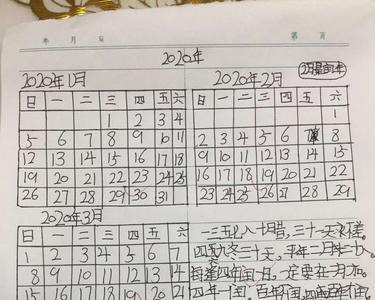 年 月 日 第 页
2020年
2020年1月
日 一 二 三 四 五 六
1 2 3 4
5 6 7 8 9 10 11
12 13 14 15 16 17 18
19 20 21 22 23 24 25
26 27 28 29 30 31
2020年2月
日 一 二 三 四 五 六
1
2 3 4 5 6 7 8
9 10 11 12 13 14 15
16 17 18 19 20 21 22
23 24 25 26 27 28 29
2020年3月
日 一 二 三 四 五 六
1 2 3 4 5 6 7
8 9 10 11 12 13 14
15 16 17 18 19 20 21
一三五七八十腊,三十一天永不差
四六九冬三十天,平年二月二十八
每逢四年闰一日,一定要在二月加
四年一闰,百年不闰,四百年